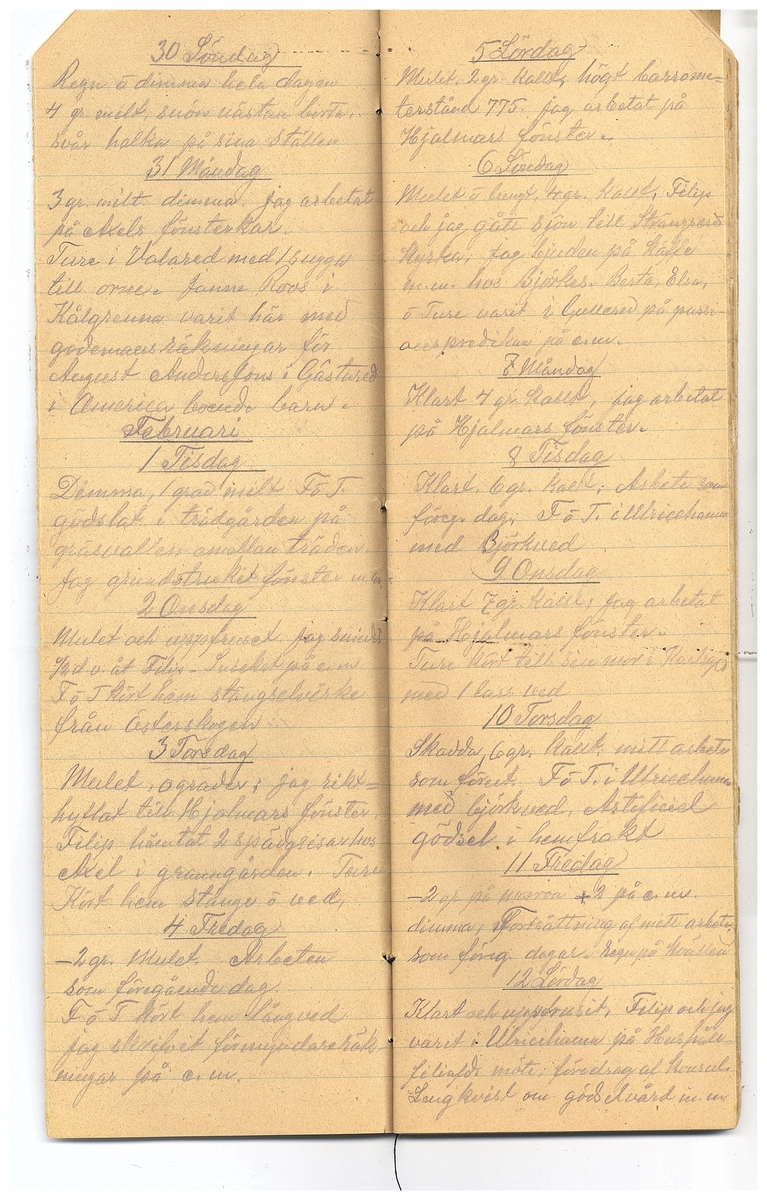 30 Söndag
Regn o dimma hela dagen
4 gr. milt, snön nästan borta,
svår halka på sina ställen
31 Måndag
3 gr. milt. dimma. jag arbetat
på Axels fönsterkar.
Ture i Valared med 1 sugga
till orne. Janne Roos i
Kålgrenna varit här med
godemansräkningar för
August Anderssons i Gåstared
i America boende barn.
Februari
1 Tisdag
Dimma, 1 grad milt F o T.
gödslat i trädgården på
gräsvallen emellan träden.
Jag grundstruket fönster m.m.
2 Onsdag
Mulet och uppfruset. Jag
åt Filip på e.m
F o T kört hem stängselvirke
från Österskogen
3 Torsdag
Mulet, 0 grader; jag rikt=
hyflat till Hjalmars fönster,
Filip hämtat 2 spädgrisar hos
Axel i granngården. Ture
Kört hem stänge o ved,
4 Fredag
-2 gr. Mulet. Arbeten
som föregående dag.
F o T kört hem långved
jag skrivet förmyndareräk-
ningar på e.m.
5 Lördag
Mulet. 2 gr. kallt, högt barrome=
terstånd 775. jag arbetat på
Hjalmars fönster.
6 Söndag
Mulet o lungt, 4 gr. kallt, Filip
och jag gått sjön till
Kyrka, jag bjuden på Kaffe
m.m. hos Björkes. Berta, Elsa,
o Ture varit i Gullered på passi-
onspredikan på e.m.
8 Måndag
Klart 4 gr. kallt, jag arbetat
på Hjalmars fönster.
8 Tisdag
Klart. 6 gr. kallt; Arbete som
föreg. dag; F o T. i Ulricehamn
med Björkved
9 Onsdag
Klart 7 gr. kallt; jag arbetat
på Hjalmars fönster.
Ture kört till sin mor i
med 1 lass ved
10 Torsdag
Skadda, 6 gr. kallt. mitt arbete
som förut. F o T. i Ulricehamn
med björkved, Artificiel
gödsel i hemfrakt
11 Fredag
-2 gr på morron +2 på e.m.
dimma, Fortsättning af mitt arbete,
som föreg. dagar. Regn på kvällen
12 Lördag
Klart och uppfrusit, Filip och jag
varit i Ulricehamn på Hushåll-
möte; föredrag af konsul.
Ljungkvist om gödselvård m.m